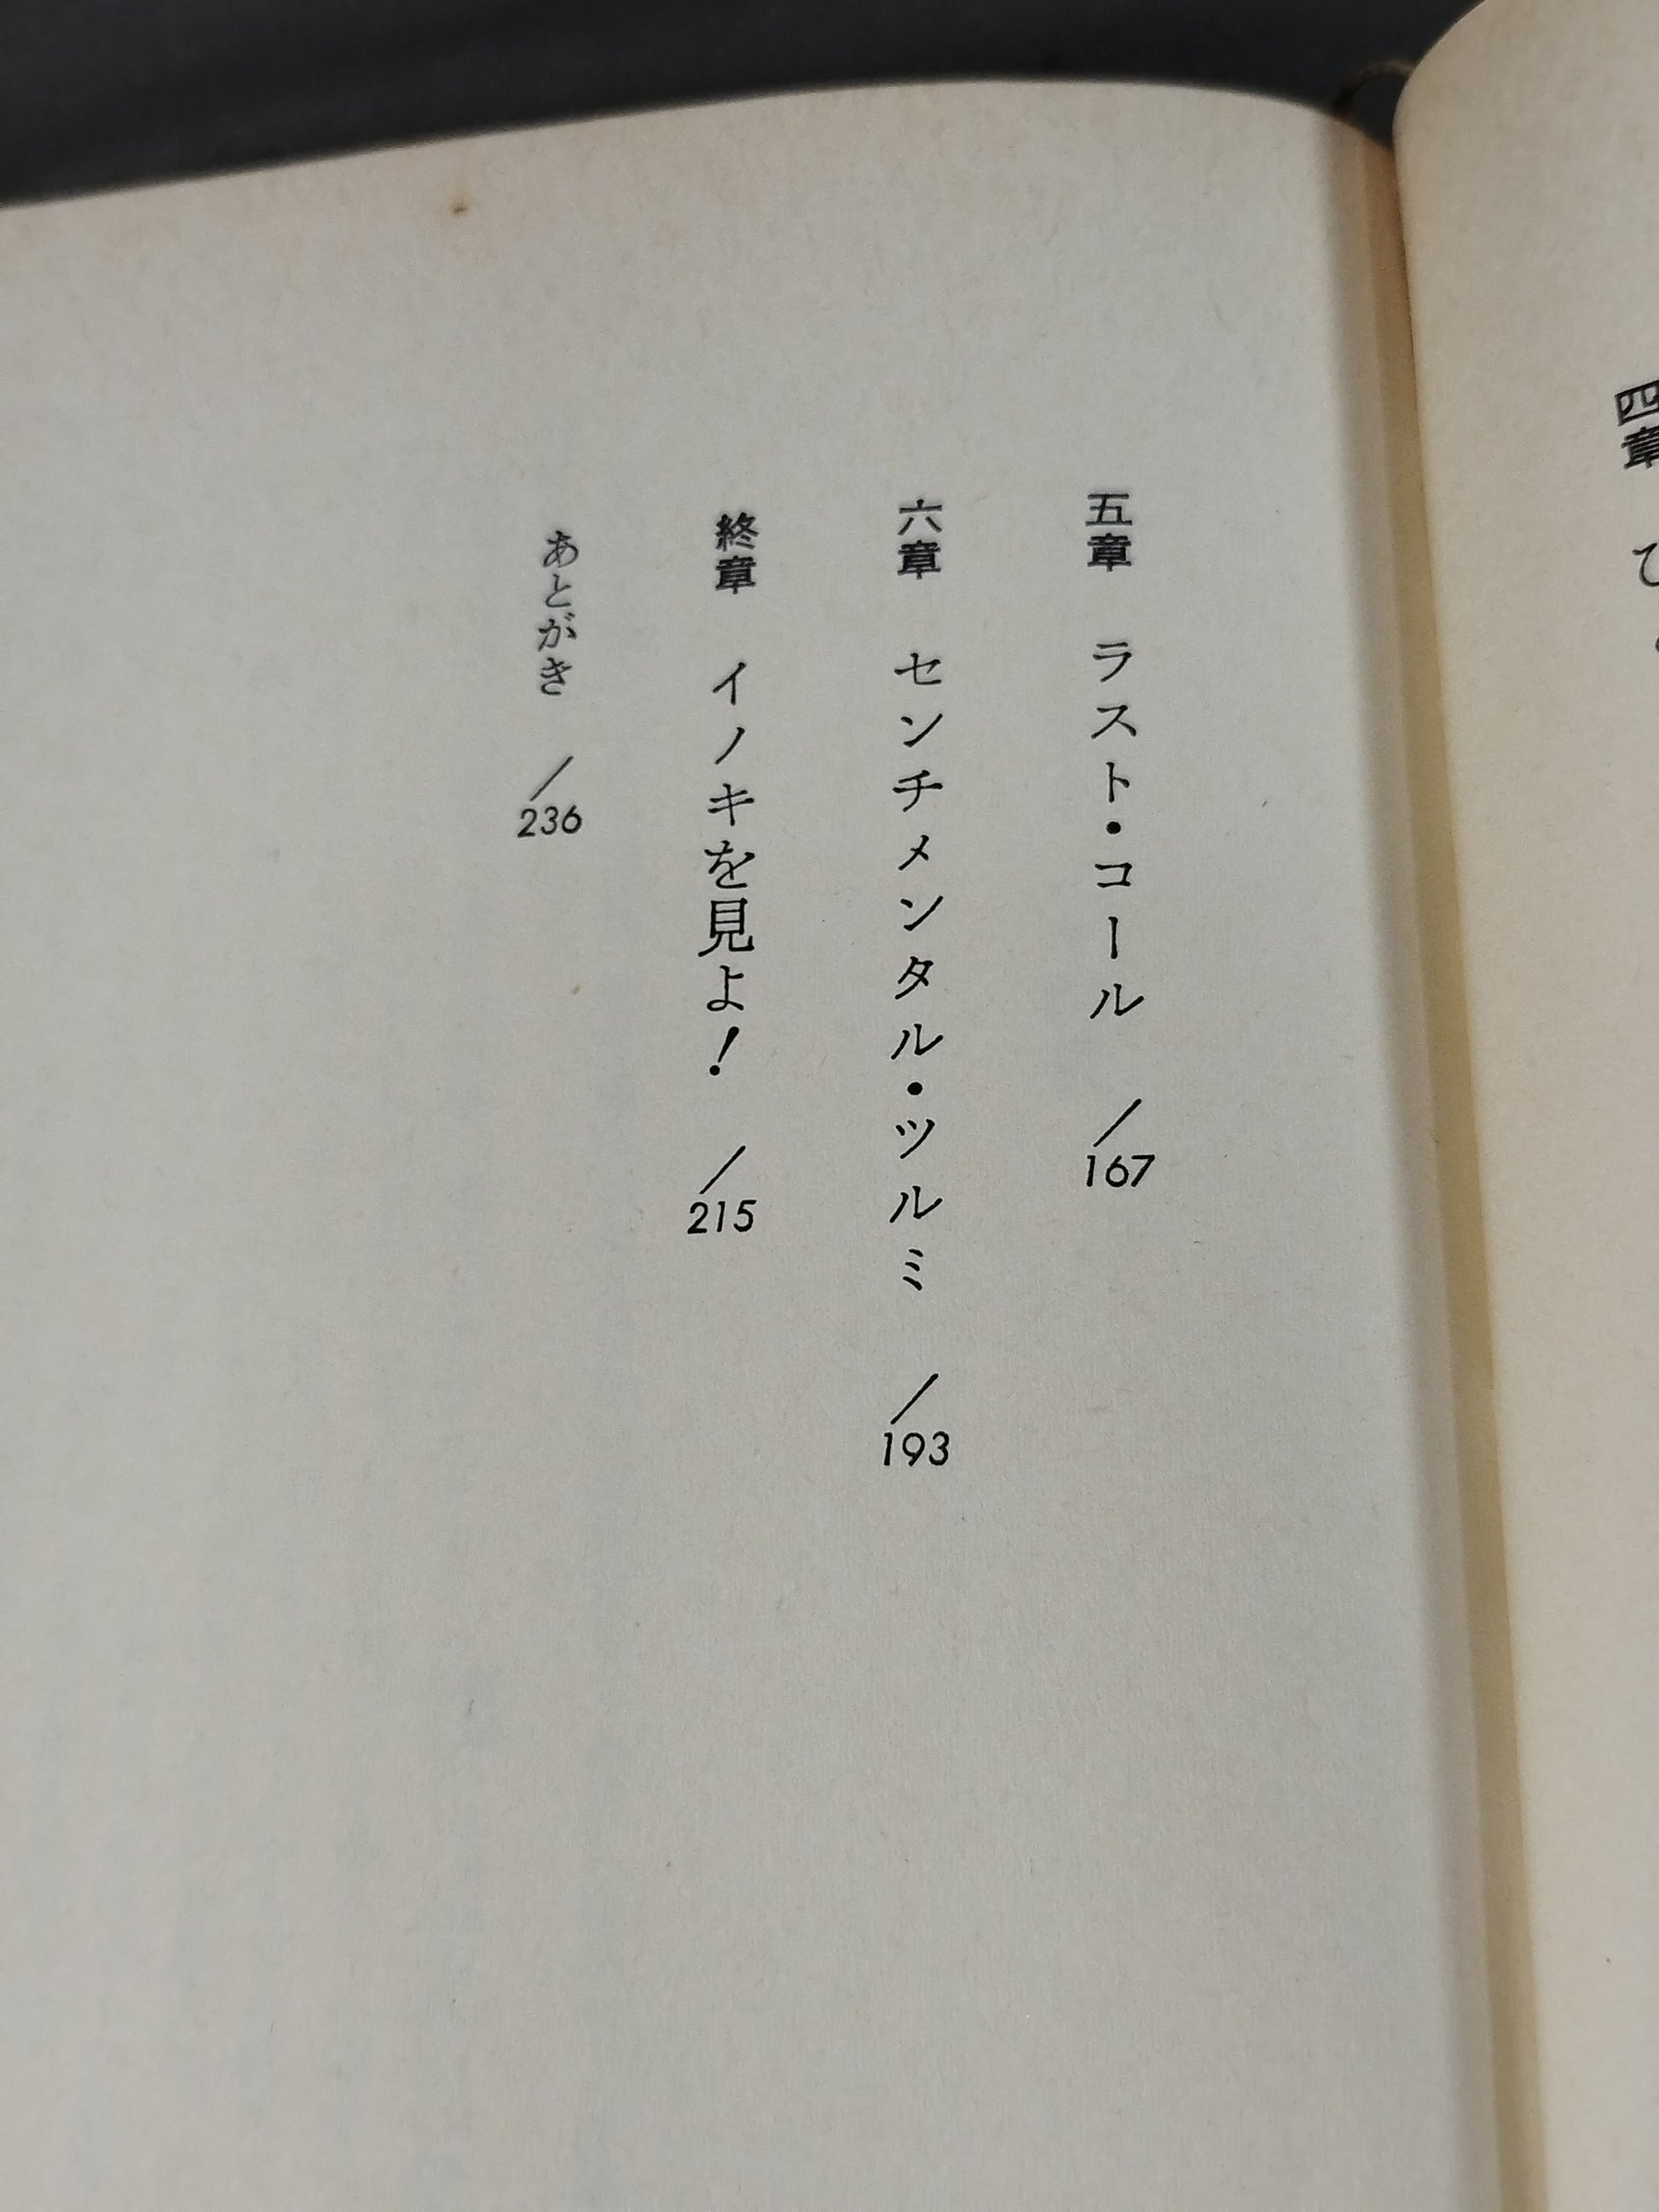 四章 ひ
五章 ラスト・コール /167
六章 センチメンタル・ツルミ /193
終章 イノキを見よ! /215
あとがき /236